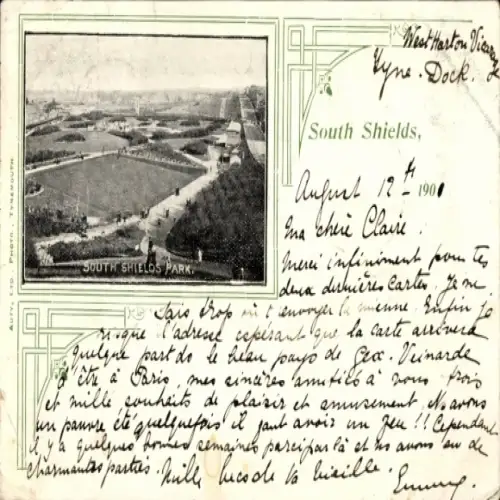 West Harton Vicarage
Tyne. Dock.
South Shields,
August 12th 1901
Ma chère Claire.
Merci infiniment pour tes
deux dernières cartes. Je ne
sais trop où t'envoyer la mienne. Enfin je
risque l'adresse espérant que la carte arrivera
quelque part ds le beau pays de Gex. Veinarde
d'être à Paris, mes sincères amitiés à vous trois
et mille souhaits de plaisir et amusement. Ns avons
un pauvre été quelquefois il faut avoir un feu!! Cependant
il y a quelques bonnes semaines par ci par là et ns avons eu de
charmantes parties. Mille becs de ta vieille.
SOUTH SHIELDS PARK.
AUTY, LTD., PHOTO., TYNEMOUTH